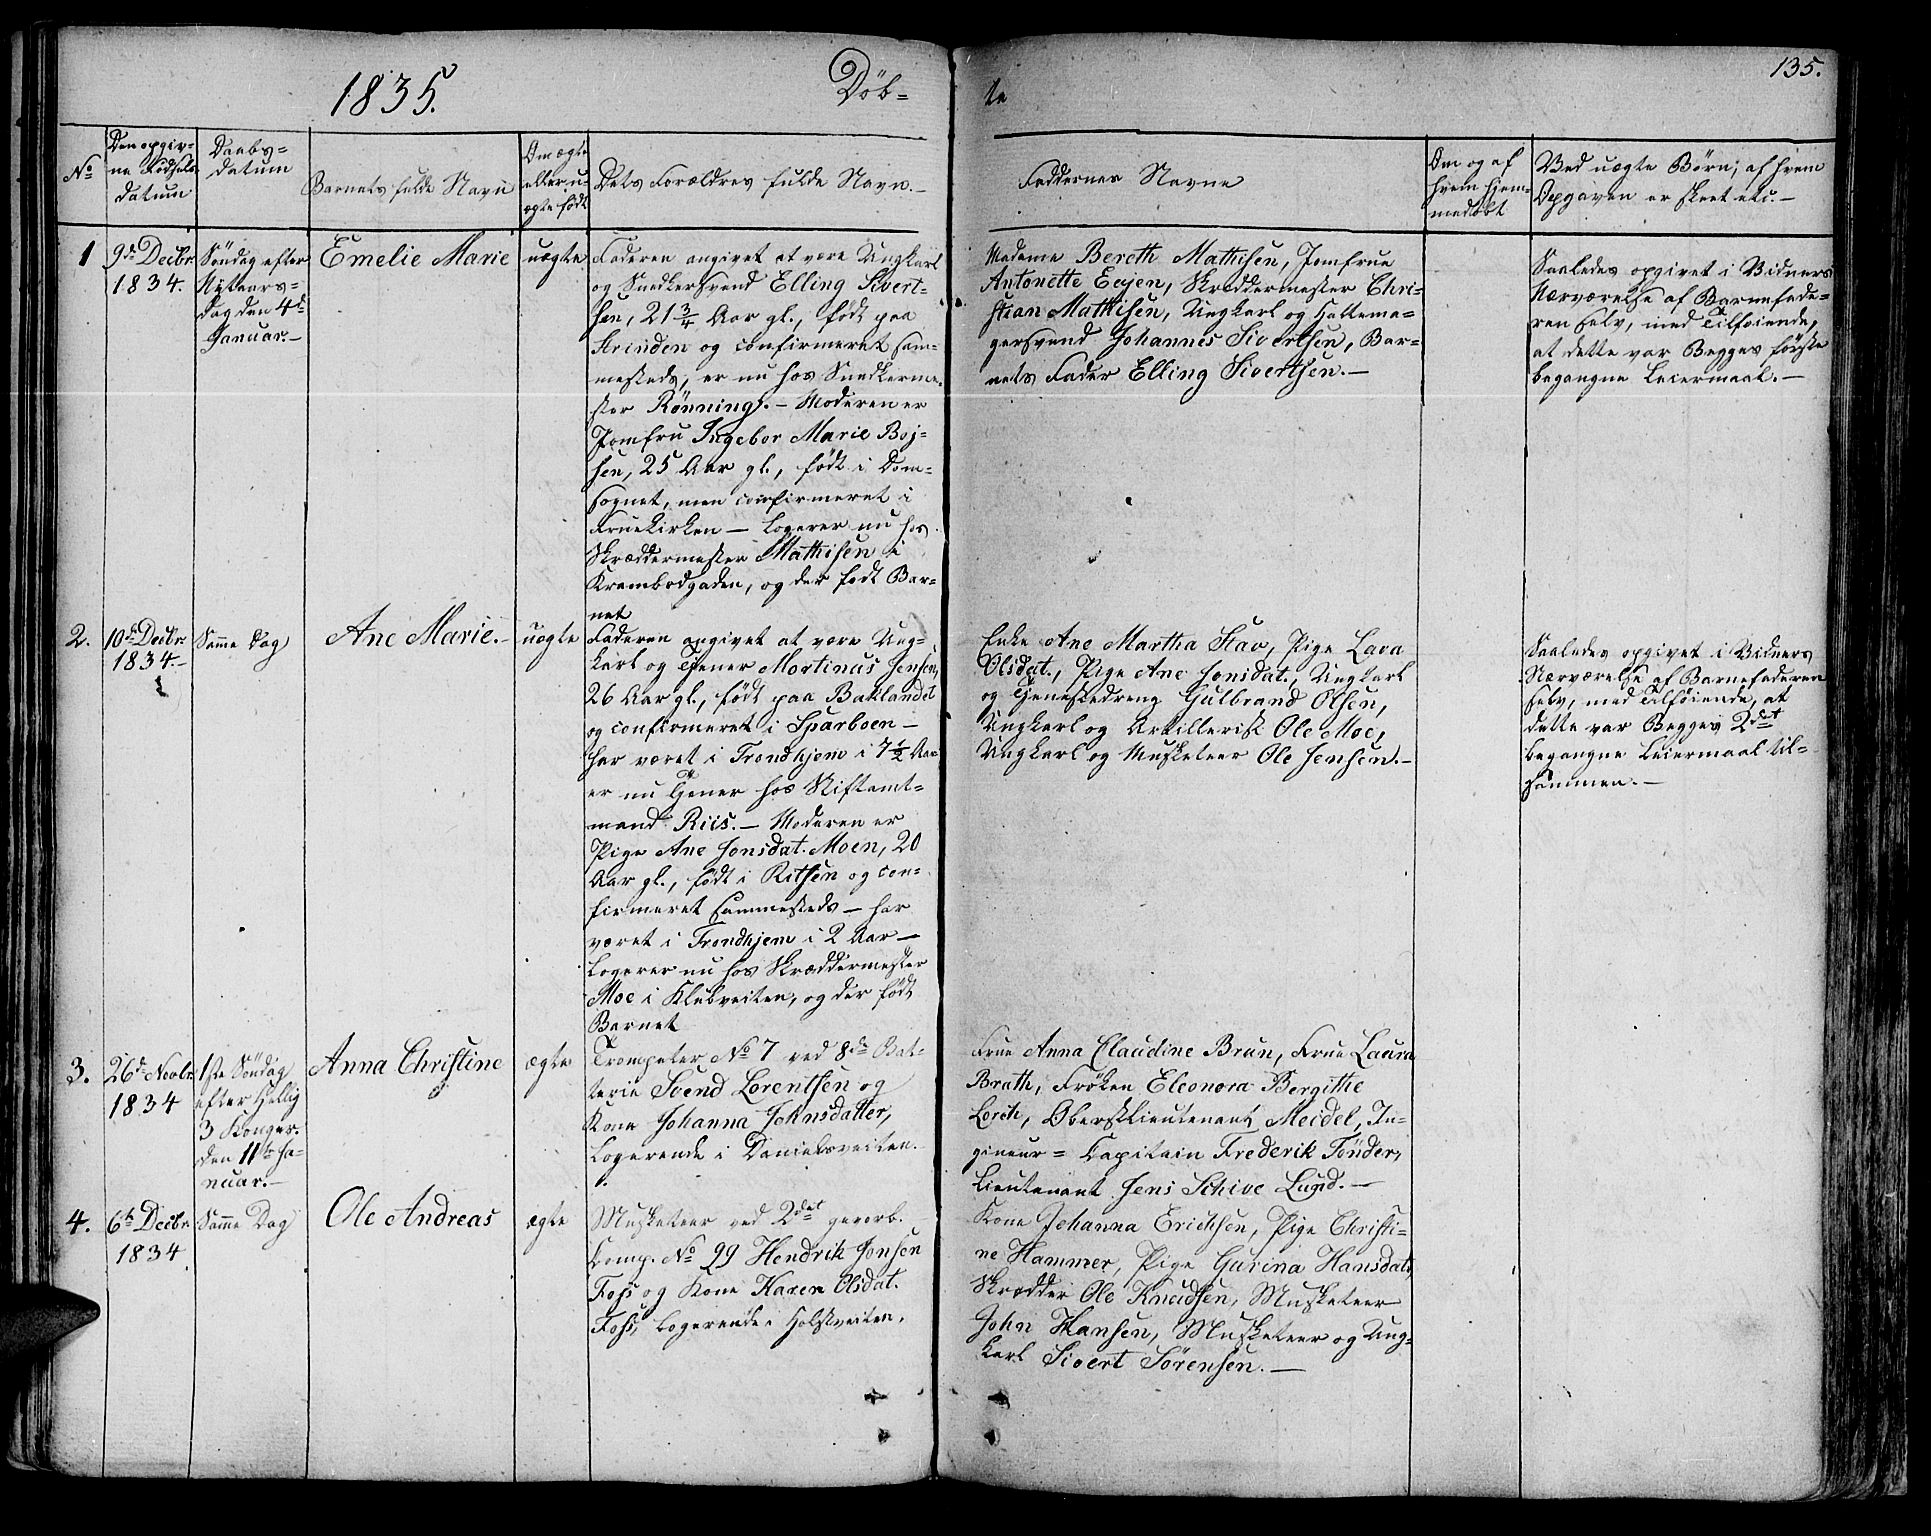 1835.
Döb-
te
135.
No
Den opgiv-
ne Fødsels
datum
Daabs-
datum
Barnets fulde Navn
Om ægte
eller u-
ægte født
Dets Forældres fulde Navn.-
Faddernes Navne
Om og af
hvem hjem-
medøbt
Ved uægte Børn; af hvem
Opgaven er skeet etc.-
1
9de Decbr.
1834.
Søndag efter
Nytaars-
dag den 4de
Januar.-
Emelie Marie
uægte
Faderen angivet at være Ungkarl
og Snedkersvend Elling Sivert-
sen, 21 3/4 Aar gl., født paa
Strinden og confirmeret sam-
mesteds, er nu hos Snedkerme-
ster Rönnings.- Moderen er
Jomfru Ingebor Marie Boj-
sen, 25 Aar gl., født i Dom-
sognet, men confirmeret i
Fruekirken - logerer nu hos
Skræddermester Mathisen i
Krambodgaden, og der født Bar-
net
Madame Bereth Mathisen, Jomfrue
Antonette Eejen, Skræddermester Chri-
stian Mathisen, Ungkarl og Hattema-
gersvend Johannes Sivertsen, Bar-
nets Fader Elling Sivertsen.-
Saaledes opgivet i Vidners
Nærværelse af Barnefade-
ren selv, med Tilføiende,
at dette var Begges første
begangne Leiermaal.-
2.
10de Decbr.
1834.-
Samme Dag
Ane Marie.-
uægte
Faderen angivet at være Ung-
karl og Tjener Mortinus Jensen,
26 Aar gl., født paa Baklandet
og confirmeret i Sparboen -
har været i Trondhjem i 7 1/2 Aar
er nu Tjener hos Stiftamt-
mand Riis.- Moderen er
Pige Ane Jonsdat. Moen, 20
Aar gl., født i Ritsen og con-
firmeret sammesteds - har
været i Trondhjem i 2 Aar -
logerer nu hos Skræddermester
Moe i Klubveiten, og der født
Barnet
Enke Ane Martha Stav, Pige Lava
Olsdat., Pige Ane Jonsdat., Ungkarl
og Tjenestedreng Gulbrand Olsen,
Ungkarl og Artillerist Ole Moe,
Ungkarl og Musketeer Ole Jensen.-
Saaledes opgivet i Vidners
Nærværelse af Barnefaderen
selv, med Tilføiende, at
dette var Begges 2det
begangne Leiermaal til-
sammen.-
3.
26de Novbr.
1834
1ste Søndag
efter Hellig
3 Konger.
den 11te Ja-
nuar.-
Anna Christine
ægte
Trompeter No 7 ved 8de Bat-
terie Svend Lorentsen og
Kone Johanna Johnsdatter,
logerende i Danielsveiten.
Frue Anna Claudine Brun, Frue Laura
Brath, Frøken Eleonora Bergithe
Lorch, Oberstlieutenant Meidel, In-
gineur= Capitain Frederik Tönder,
Lieutenant Jens Schive Lund.-
4.
6te Decbr.
1834
Samme Dag
Ole Andreas
ægte
Musketeer ved 2det gevorb.
Comp. No 99 Hendrik Jonsen
Foss og Kone Karen Olsdat.
Foss, logerende i Holstveiten.
Kone Johanna Erichsen, Pige Christi-
ne Hammer, Pige Gurina Hansdat,
Skrædder Ole Knudsen, Musketeer
John Hansen, Musketeer og Ung-
karl Sivert Sörensen.-